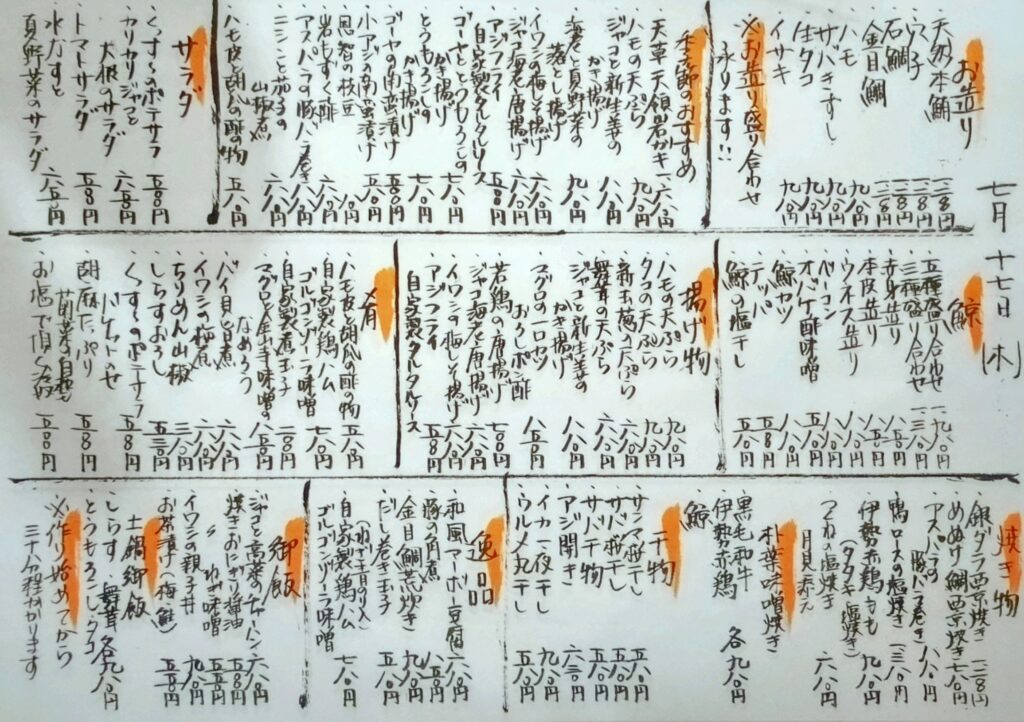 七月十七日(木)
お造り
・天然本鮪 一二八〇円
・穴子 一二八〇円
・石鯛 一二八〇円
・金目鯛 一二八〇円
・ハモ 九八〇円
・サバきずし 九八〇円
・生タコ 九八〇円
・イサキ 九八〇円
※お造り盛り合わせ
承ります!!
季節のおすすめ
・天草天領岩ガキ 一六八〇円
・ハモの天ぷら 九八〇円
・ジャコと新生姜の
かき揚げ 八八〇円
・海老と夏野菜の
落とし揚げ 九八〇円
・イワシの梅しそ揚げ 六八〇円
・ジャコ海老と唐揚げ 六八〇円
・アジフライ
自家製タルタルソース 五八〇円
・ゴーヤととうもろこしの
かき揚げ 七八〇円
・とうもろこしの
かき揚げ 七八〇円
・ゴーヤの南蛮漬け 五八〇円
・小アジの南蛮漬け 五八〇円
・恩智の枝豆
・岩もずく酢
・アスパラの豚バラ巻き
・ニシンと茄子の
山椒煮 六八〇円
・ハモ皮と胡瓜の酢の物 五八〇円
サラダ
・くつろぎのポテサラ 五八〇円
・カリカリジャコと
大根のサラダ 六八〇円
・トマトサラダ 五八〇円
・水なすと
夏野菜のサラダ 六八〇円
鯨
・五種盛り合わせ
・三種盛り合わせ
・赤身造り
・本皮造り
・ウネス造り
・ベーコン
・オバケ酢味噌
・鯨カツ
・テッパ
・鯨の塩干し 五八〇円
揚げ物
・ハモの天ぷら 九八〇円
・タコの天ぷら 九八〇円
・新玉葱の天ぷら
・舞茸の天ぷら 六八〇円
・ジャコと新生姜の
かき揚げ 八八〇円
・マグロの一口カツ
おろしポン酢 八五〇円
・若鶏の唐揚げ
・ジャコ海老と唐揚げ 六八〇円
・イワシの梅しそ揚げ 六八〇円
・アジフライ
自家製タルタルソース 五八〇円
肴
・ハモ皮と胡瓜の酢の物 五八〇円
・自家製鶏ハム
ゴルゴンゾーラ味噌 七八〇円
・自家製煮玉子
・マグロと金山寺味噌の
なめろう 八五〇円
・バイ貝旨煮 六八〇円
・イワシの梅煮 六八〇円
・ちりめん山椒
・しらすおろし
・くつろぎのポテサラ
バゲットのせ 五八〇円
・胡麻たっぷり
胡瓜
お塩で頂く冷奴 五八〇円
焼き物
・銀ダラ西京焼き 一二八〇円
・めぬけ鯛西京焼き 七八〇円
・アスパラの
豚バラ巻き 八八〇円
・鴨ロースの塩焼き 一二八〇円
・伊勢赤鶏もも
(タタキ・塩焼き) 九八〇円
・つくねの塩焼き
月見添え 六八〇円
朴葉味噌焼き
・黒毛和牛
・伊勢赤鶏
・鯨
各九八〇円
干物
・サンマ糀干し
・サバ糀干し
・サバ干物
・アジ開き
・イカ一夜干し
・ウルメ丸干し
逸品
・和風マーボー豆腐 六八〇円
・豚の角煮
・金目鯛煮焚き
・だし巻き玉子
・自家製鶏ハム
ゴルゴンゾーラ味噌 七八〇円
御飯
・ジャコと高菜のチャーハン
・焼きおにぎり醤油
〃 ねぎ味噌
・イワシの親子丼
・お茶漬け(梅・鮭)
土鍋御飯
・しらす・舞茸
・とうもろこし・タコ
各九八〇円
※作り始めてから
三十分程かかります